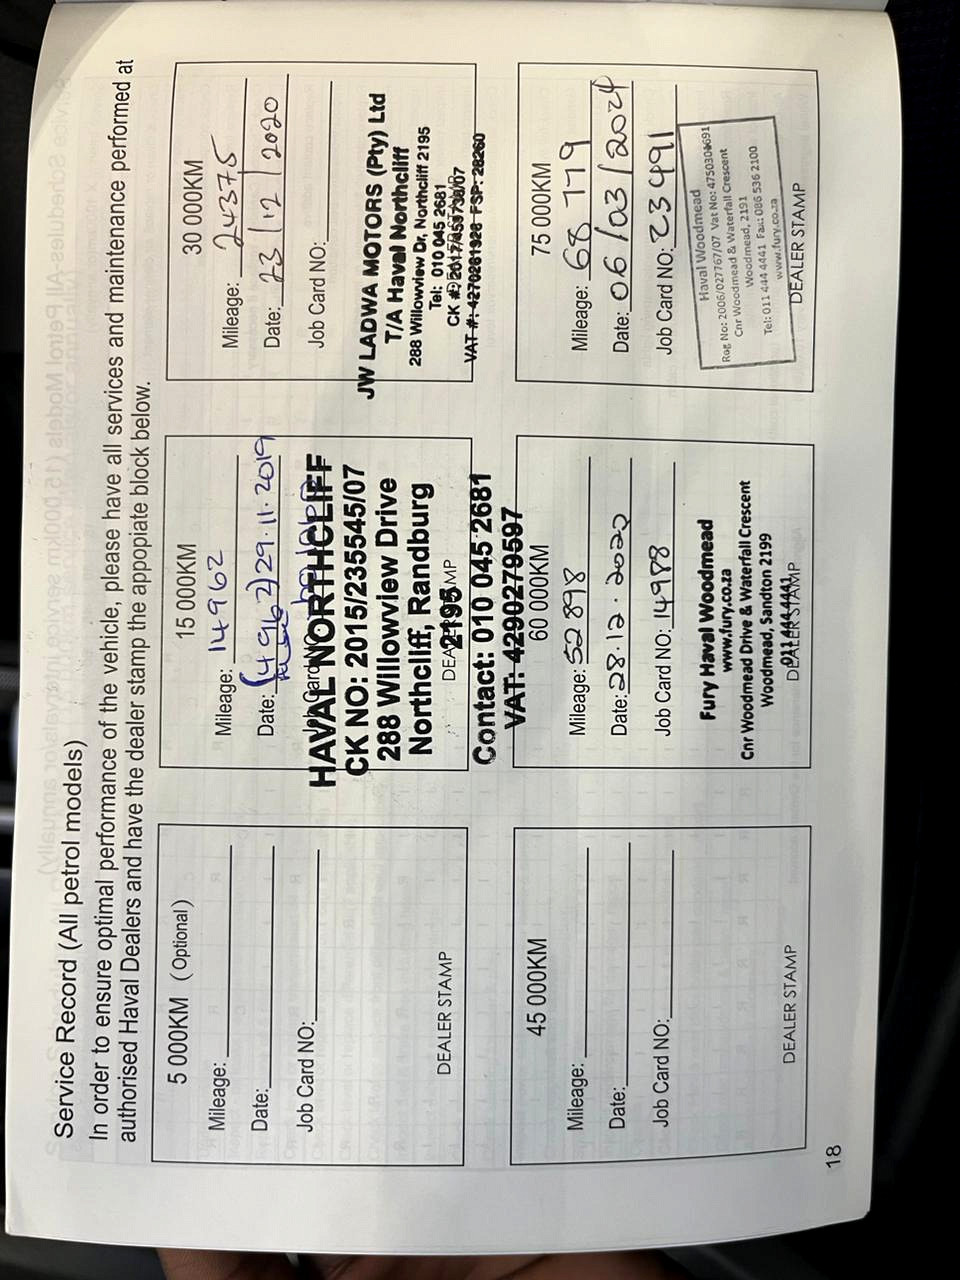 Service Record (All petrol models)
In order to ensure optimal performance of the vehicle, please have all services and maintenance performed at
authorised Haval Dealers and have the dealer stamp the appopiate block below.
5 000KM (Optional)
Mileage:
Date:
Job Card NO:
DEALER STAMP
15 000KM
Mileage: 14962
Date: 14962) 29.11.2019
HAVAL NORTHCLIFF
CK NO: 2015/235545/07
288 Willowview Drive
Northcliff, Randburg
2195
Contact: 010 045 2681
VAT: 4290279597
30 000KM
Mileage: 24375
Date: 23/12/2020
Job Card NO:
JW LADWA MOTORS (Pty) Ltd
T/A Haval Northcliff
288 Willowview Dr, Northcliff 2195
Tel: 010 045 2681
VAT #: 4270261328 FSP: 28260
45 000KM
Mileage:
Date:
Job Card NO:
DEALER STAMP
60 000KM
Mileage: 52898
Date: 28.12.2022
Job Card NO: 14988
Fury Haval Woodmead
www.fury.co.za
Cnr Woodmead Drive & Waterfall Crescent
Woodmead, Sandton 2199
011 444 4441
DEALER STAMP
75 000KM
Mileage: 68 779
Date: 06/03/2024
Job Card NO: 23491
Haval Woodmead
Reg No: 2006/027767/07 Vat No:
Cnr Woodmead & Waterfall Crescent
Woodmead, 2191
Tel: 011 444 4441 Fax: 086 536 2100
www.fury.co.za
DEALER STAMP
18